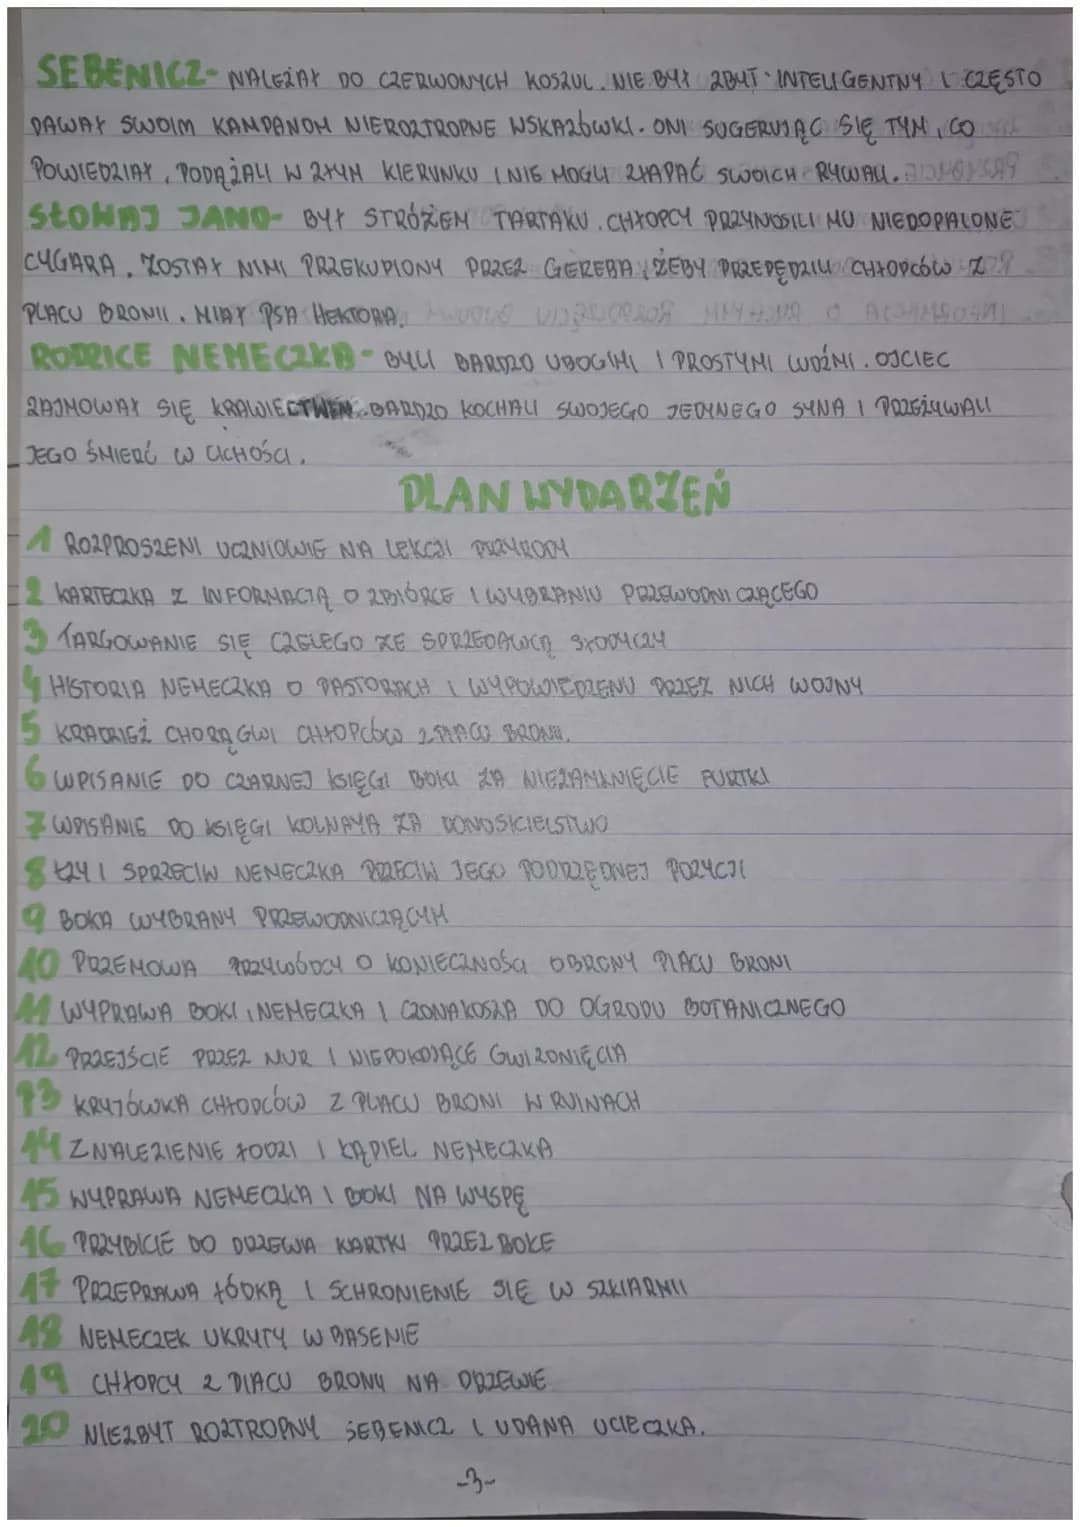 SEBENICZ- NALEŻAŁ DO CZERWONYCH KOSZUL. NIE BYŁ ZBYT INTELIGENTNY I CZĘSTO
DAWAŁ SWOIM KAMPANOM NIEROZTROPNE WSKAZÓWKI. ONI SUGERUJĄC SIĘ TYM, CO
POWIEDZIAŁ, PODĄŻALI W ZŁYM KIERUNKU I NIE MOGLI ZŁAPAĆ SWOICH RYWALI.
SŁOWAJ JANO- BYŁ STRÓŻEM TARTAKU. CHŁOPCY PRZYNOSILI MU NIEDOPALONE
CYGARA. ZOSTAŁ NIMI PRZEKUPIONY PRZEZ GEREBA, ŻEBY PRZEPĘDZIŁ CHŁOPCÓW Z
PLACU BRONII. MIAŁ PSA HEKTORA.
RODZICE NEMECZKA- BYLI BARDZO UBOGIMI I PROSTYMI LUDŹMI. OJCIEC
ZAJMOWAŁ SIĘ KRAWIECTWEM. BARDZO KOCHALI SWOJEGO JEDYNEGO SYNA I PRZEŻYWALI
JEGO ŚMIERĆ W CICHOŚCI.
PLAN WYDARZEŃ
1 ROZPROSZENI UCZNIOWIE NA LEKCJI PRZYRODY
2 KARTECZKA Z INFORMACJĄ O ZBIÓRCE I WYBRANIU PRZEWODNICZĄCEGO
3 TARGOWANIE SIĘ CZELEGO ZE SPRZEDAWCĄ SŁODYCZY
4 HISTORIA NEMECZKA O PASTORACH I WYPOWIEDZENIU PRZEZ NICH WOJNY
5 KRADZIEŻ CHORĄGWI CHŁOPCÓW Z PLACU BRONII.
6 WPISANIE DO CZARNEJ KSIĘGI BOKI ZA NIEZAMKNIĘCIE FURTKI
7 WPISANIE DO KSIĘGI KOLNAYA ZA DONOSICIELSTWO
8 ŁZY I SPRZECIW NEMECZKA PRZECIW JEGO PODRZĘDNEJ POZYCJI
9 BOKA WYBRANY PRZEWODNICZĄCYM
10 PRZEMOWA PRZYWÓDCY O KONIECZNOŚCI OBRONY PLACU BRONI
11 WYPRAWA BOKI, NEMECZKA I CZONAKOSZA DO OGRODU BOTANICZNEGO
12 PRZEJŚCIE PRZEZ MUR I NIEPOKOJĄCE GWIZDNIĘCIA
13 KRYJÓWKA CHŁOPCÓW Z PLACU BRONI W RUINACH
14 ZNALEZIENIE ŁODZI I KĄPIEL NEMECZKA
15 WYPRAWA NEMECZKA I BOKI NA WYSPĘ
16 PRZYBICIE DO DRZEWA KARTKI PRZEZ BOKE
17 PRZEPRAWA ŁÓDKĄ I SCHRONIENIE SIĘ W SZKLARNII
18 NEMECZEK UKRYTY W BASENIE
19 CHŁOPCY Z PLACU BRONY NA DRZEWIE
20 NIEZBYT ROZTROPNY SEBENICZ I UDANA UCIECZKA.
-3-